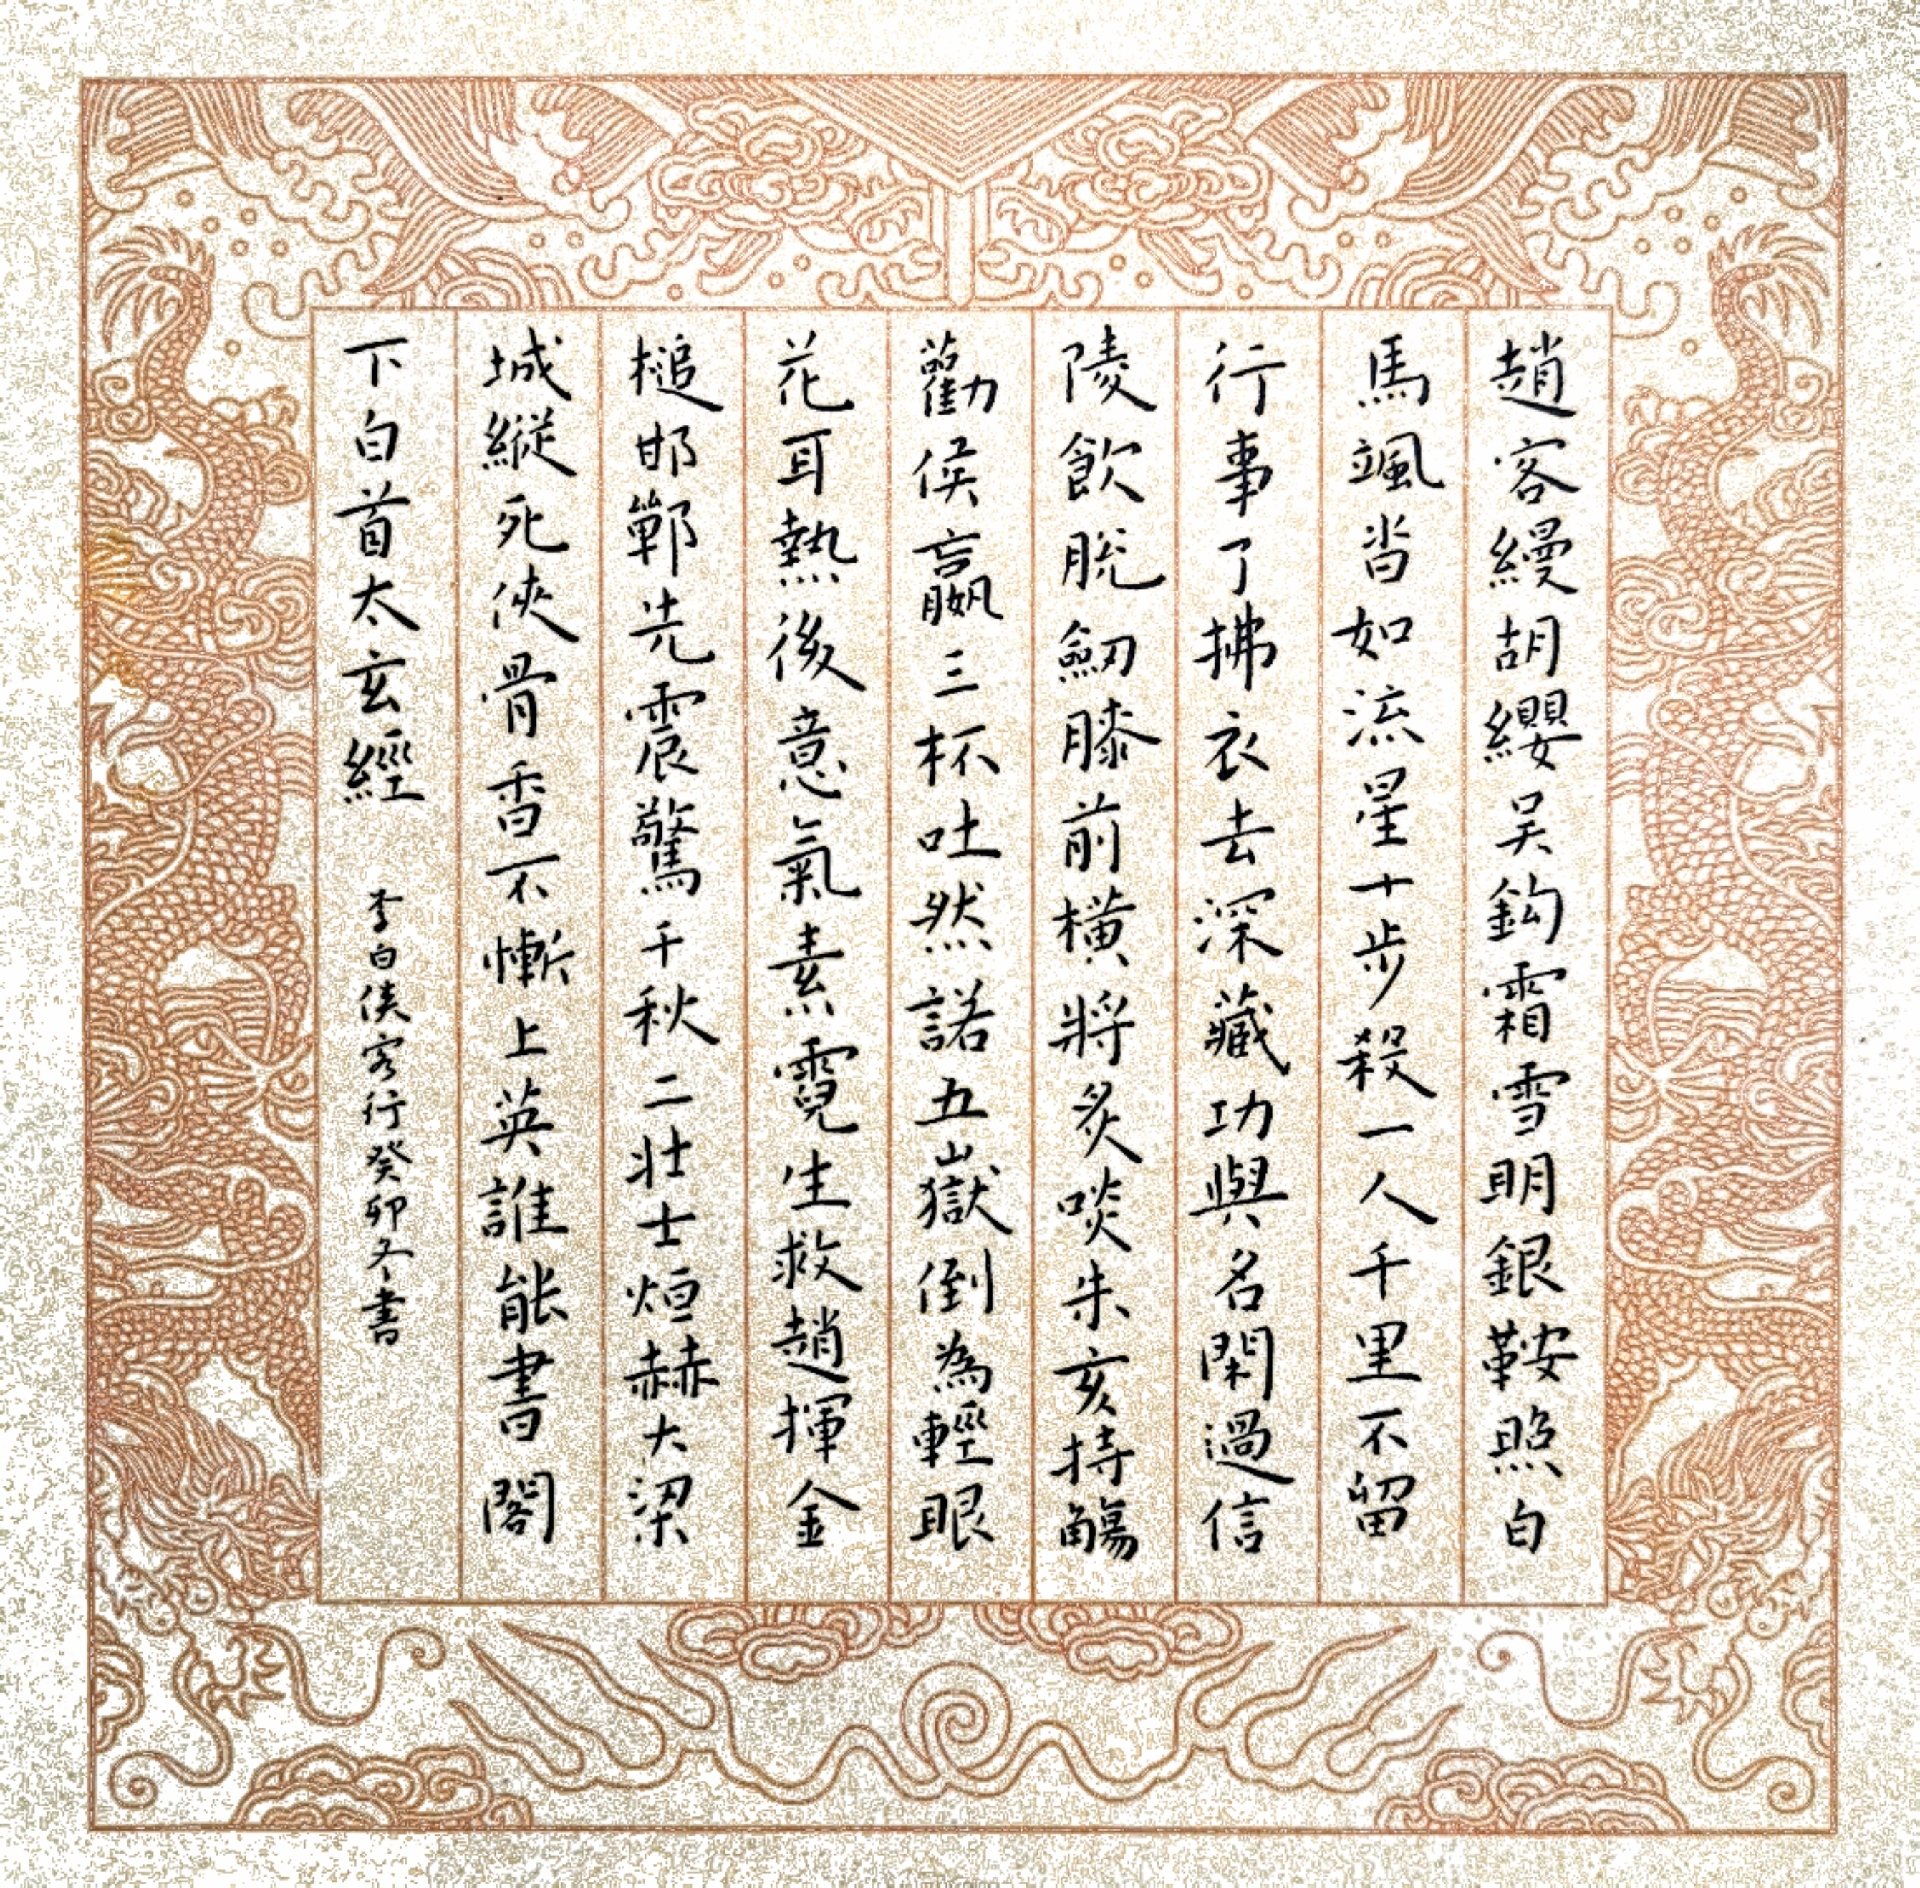 趙客縵胡纓吳鈎霜雪明銀鞍照白
馬颯沓如流星十步殺一人千里不留
行事了拂衣去深藏功與名閑過信
陵飲脫劒膝前橫將炙啖朱亥持觴
勸侯嬴三杯吐然諾五嶽倒為輕眼
花耳熱後意氣素霓生救趙揮金
槌邯鄲先震驚千秋二壮士烜赫大梁
城縱死俠骨香不慚上英誰能書閣
下白首太玄經 李白俠客行癸卯冬書